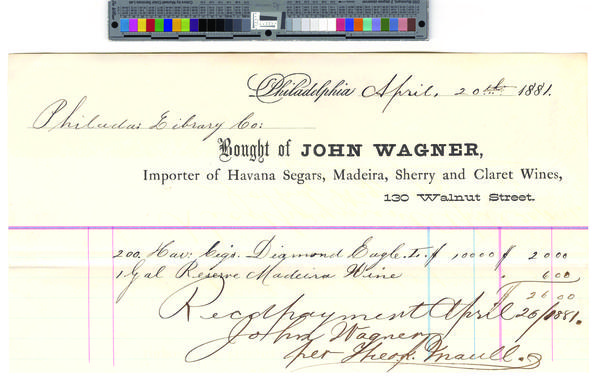 Philadelphia April, 20th 1881.
Philada: Library Co:
Bought of JOHN WAGNER,
Importer of Havana Segars, Madeira, Sherry and Claret Wines,
130 Walnut Street.
200 Hav: Cigs. Diamond Eagle. $ 10000 $ 20 00
1 Gal Reserve Madeira Wine " 6 00
$ 26 00
Recd payment April 26/1881.
John Wagner
per Theop. Maull.